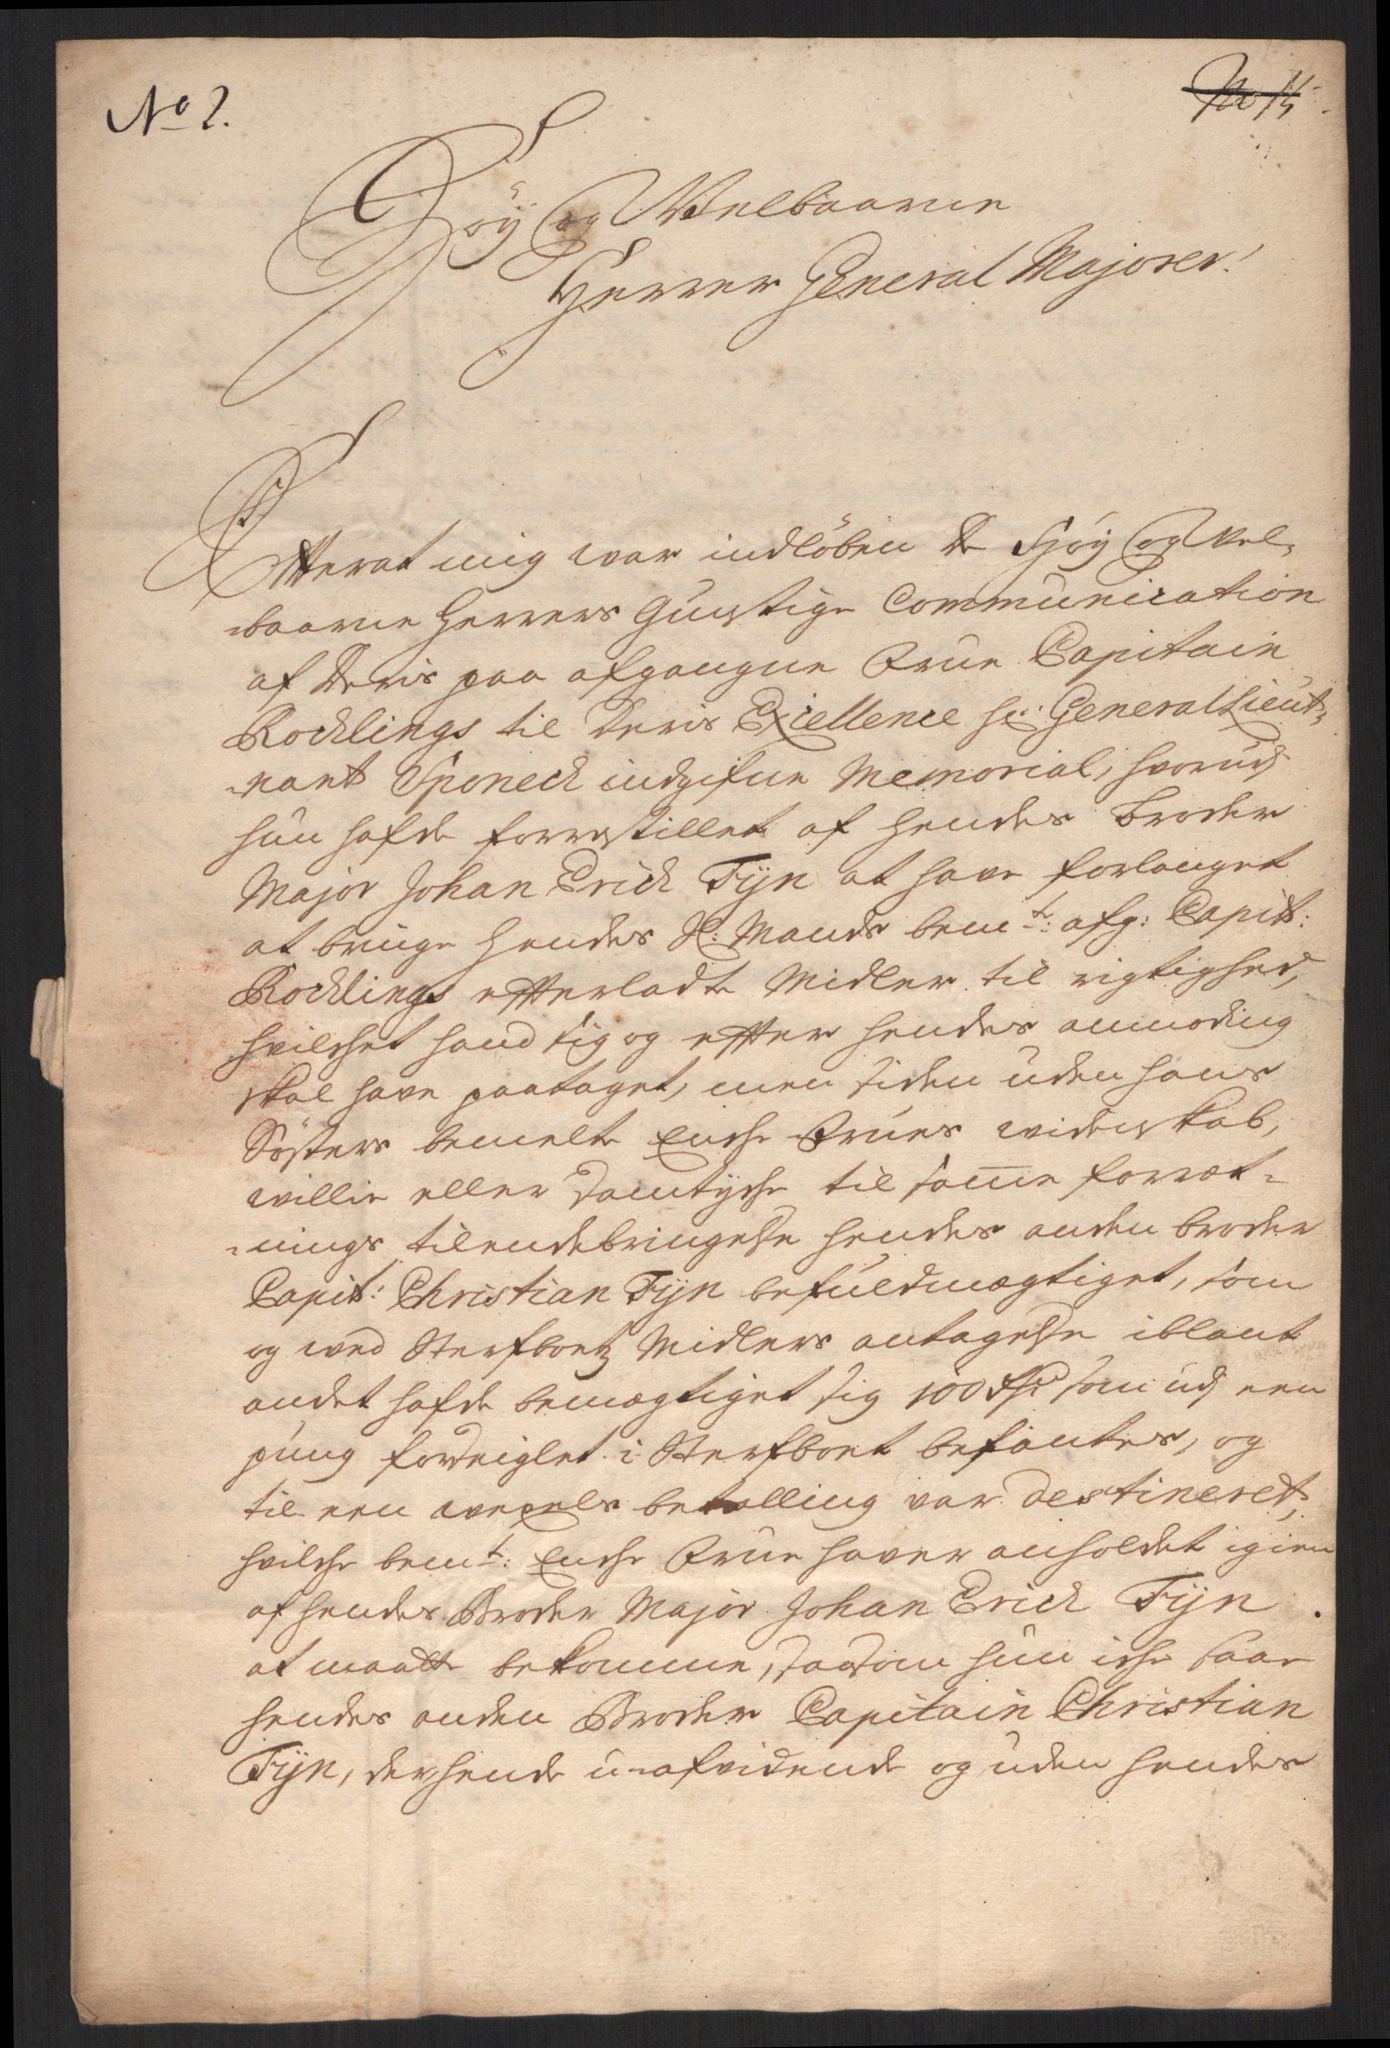 No 2.
No 14
Høÿ og Velbaarne
Herrer General Majorer!
Efterat mig war indløben De Høÿ og Vel-
baarne Herrers Gunstige Communication
af Deris paa afgangne Frue Capitain
Rocklings til Deris Excellence Hr: General Lieut-
nant Sponeck indgifne Memorial, hvorudj
hun hafde forrestillet af hendes Broder
Major Johan Erick Tÿn at have forlanget
at bringe hendes S: Mands bemt: afg: Capit:
Rocklings efterladte Midler til rigtighed,
hvilchet hand sig og efter hendes anmoding
skal have paataget, men siden uden hans
Søsters bemelte Enche Frues widenskab,
willie eller Samtÿche til samme forræt-
nings tilendebringelse hendes anden broder
Capit: Christian Tÿn befuldmægtiget, som
og wed Sterfboetz Midlers antagelse iblant
andet hafde bemægtiget sig 100 Rdr som udj een
pung forseiglet i Sterfboet befantes, og
til een wexels betalling var destineret,
hvilche bemt: Enche Frue haver anholdet igien
af hendes Broder Major Johan Erick Tÿn
at maatte bekomme, saasom hun iche saae
hendes anden Broder Capitain Christian
Tÿn, der hende u-afvidende og uden hendes